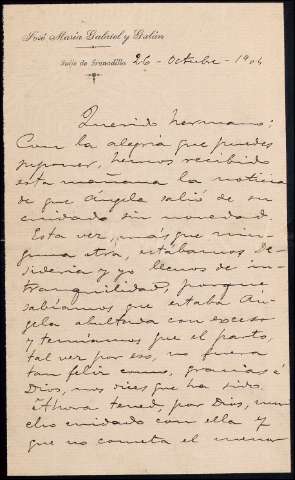 José María Gabriel y Galán
Guijo de Granadilla 26 - Octubre - 1904
Querido hermano:
Con la alegría que puedes
suponer, hemos recibido
esta mañana la noticia
de que Ángela salió de su
cuidado sin novedad.
Esta vez, más que nin-
guna otra, estábamos De-
sideria y yo llenos de in-
tranquilidad, porque
sabíamos que estaba Án-
gela abultada con exceso
y temíamos que el parto,
tal vez por eso, no fuera
tan feliz como, gracias á
Dios, nos dices que ha sido.
Ahora tened, por Dios, mu-
cho cuidado con ella y
que no cometa el menor